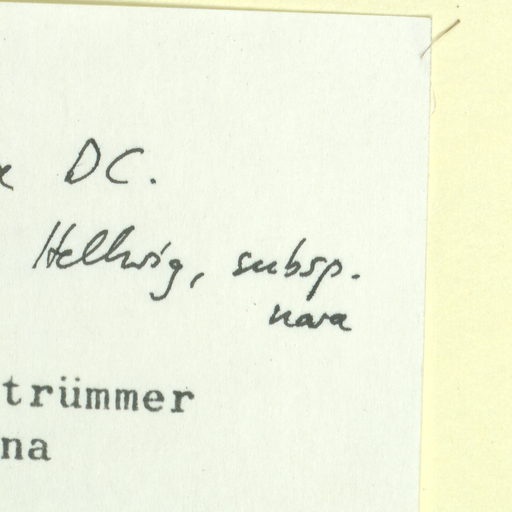 DC.
Hellwig, subsp.
nova
trümmer
na